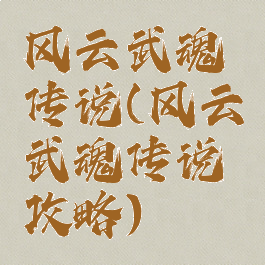 风云武魂
传说(风云
武魂传说
攻略)